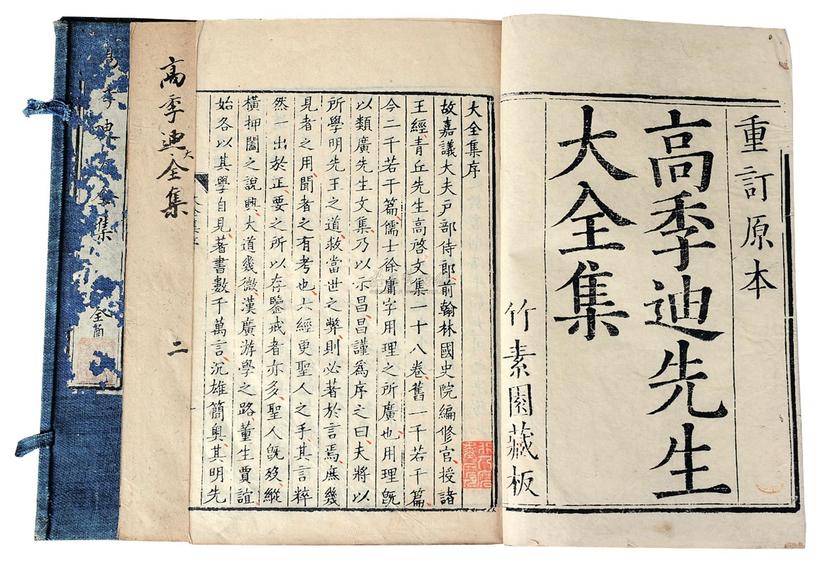 重訂原本
高季迪先生
大全集
竹素園藏板
大全集序
故嘉議大夫戶部侍郎前翰林國史院編修官授諸
王經青丘先生高啓文集一十八卷舊一千若干篇
今二千若干篇儒士徐庸字用理之所廣也用理旣
以類廣先生文集乃以示昌昌謹爲序之曰夫將以
所學明先王之道救當世之弊則必著於言焉庶幾
見者之用聞者之有考也六經更聖人之手其言粹
然一出於正要之所以存鑒戒者亦多聖人旣歿縱
橫捭闔之說興大道幾微漢廣游學之路董生賈誼
始各以其學自見著書數千萬言沉雄簡奧其明先
高季迪大全集
二
季
集
全函